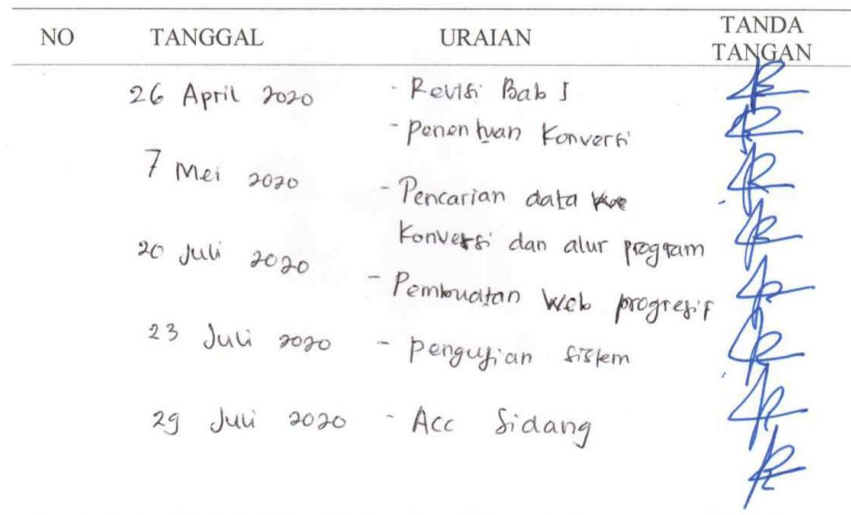 NO TANGGAL URAIAN TANDA TANGAN
26 April 2020 - Revisi Bab I
- Penentuan Konversi
7 Mei 2020 - Pencarian data
Konversi dan alur program
20 Juli 2020 - Pembuatan Web progresif
23 Juli 2020 - Pengujian sistem
29 Juli 2020 - Acc Sidang